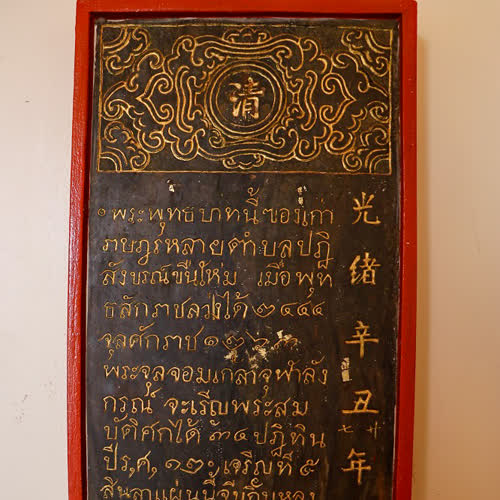 清
๏ พระพุทธบาทนี้ของเก่า
ราษฎรหลายตำบลปฏิ
สังขรณ์ขึ้นใหม่ เมื่อพุท
ธสักราชล่วงได้ ๒๔๔๔
จุลศักราช ๑๒๖
พระจุลจอมเกล้าจุฬาลัง
กรณ์ จะเริญพระสม
บัติศกได้ ๓๔ ปฏิทิน
ปีร,ศ, ๑๒๐ เจริญที่ ๕
ศิลาแผ่นนี้จีน
光緒辛丑年
七廿